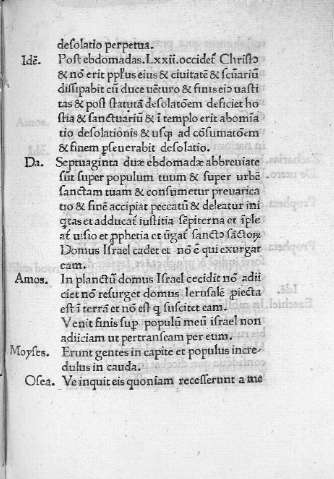 desolatio perpetua.
Idē. Post ebdomadas. LXXII. occidet̃ Christo
& nō erit pp̃lus eius & ciuitatē & sct̃uariū
dissipabit cū duce uẽturo & finis eiꝰ uasti
tas & post statutā desolatōem deficiet hostia & sanctuariū & ī templo erit abomīa
tio desolationis & usqꝫ ad cōsumatōem
& finem ꝑseuerabit desolatio.
Da. Septuaginta duæ ebdomadæ abbreuiatæ
sūt super populum tuum & super urbē
sanctam tuam & consumetur preuarica
tio & finē accipiat peccatū & deleatur ini
q̃tas et adducat̃ iustitia sẽpiterna et īple
at̃ uisio et ꝓphetia et ũgat̃ sancto℞ sāctoꝝ
Domus Israel cadet et nō ē qui exurgat
eam.
Amos. In planctū domus Israel cecidit nō adii
ciet nō resurget domus Ierusalē ꝓiecta
est ī terrā et nō est q̃ suscitet eam.
Venit finis sup̱ populū meū israel non
adiiciam ut pertranseam per eum.
Moyses. Erunt gentes in capite et populus incre-
dulus in cauda.
Osea. Ve inquit eis quoniam recesserunt a me